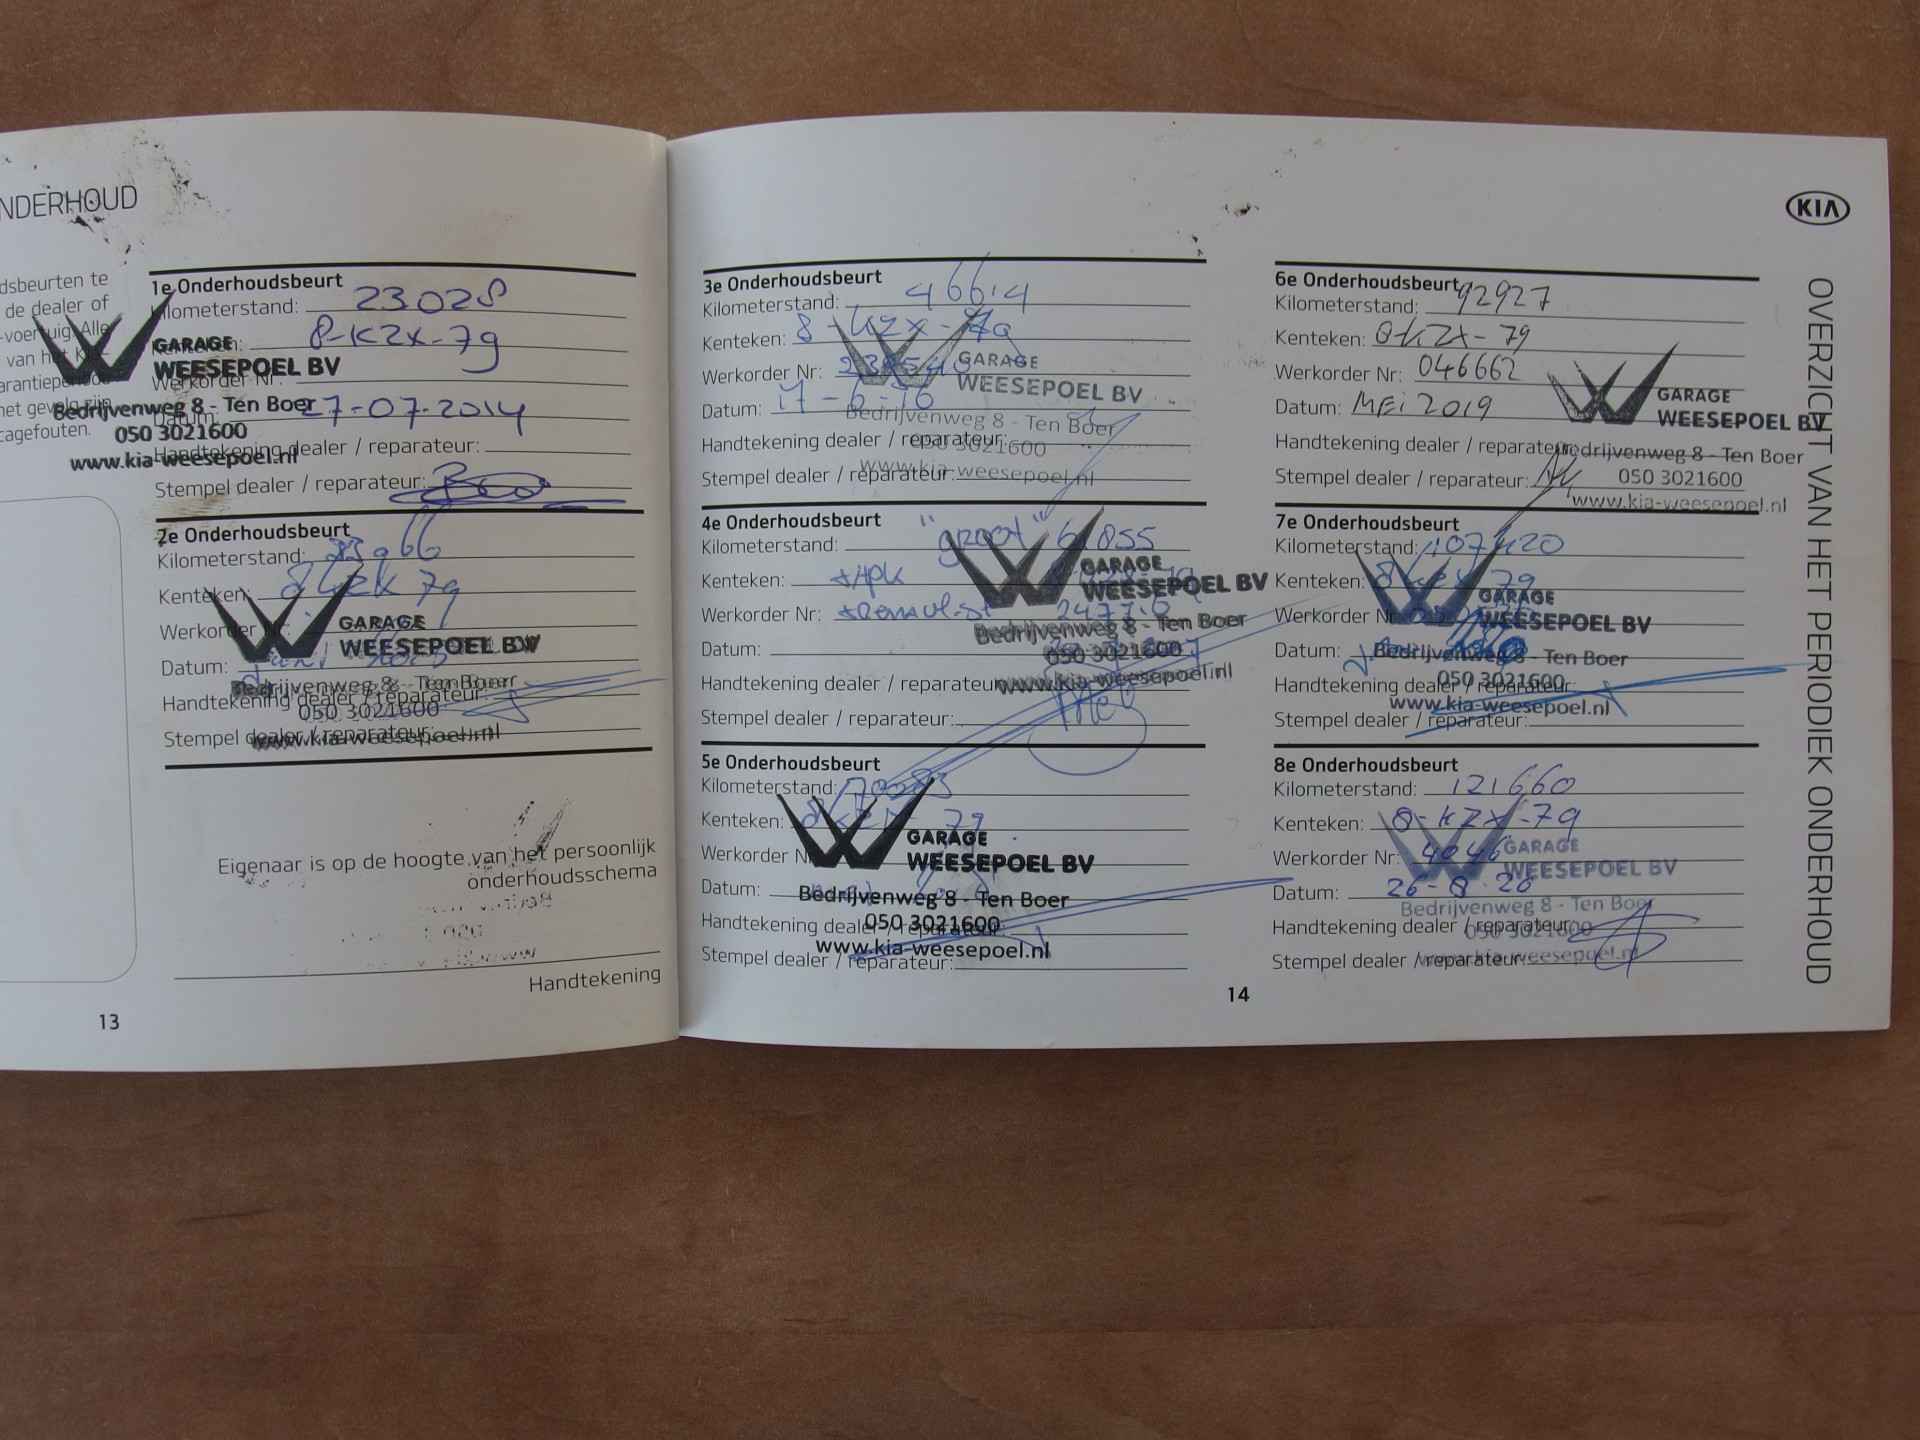 NDERHOUD
dsbeurten te
de dealer of
-voertuig. Alle
van het
arantieperiode
net gevolg zijn
cagefouten.
1e Onderhoudsbeurt
Kilometerstand: 23028
Kenteken: 8-KZX-79
Werkorder Nr.:
Datum: 27-07-2014
Handtekening dealer / reparateur:
Stempel dealer / reparateur:
GARAGE
WEESEPOEL BV
Bedrijvenweg 8 - Ten Boer
050 3021600
www.kia-weesepoel.nl
2e Onderhoudsbeurt
Kilometerstand:
Kenteken:
Werkorder Nr.:
Datum:
Handtekening dealer / reparateur:
Stempel dealer / reparateur:
GARAGE
WEESEPOEL BV
Bedrijvenweg 8 - Ten Boer
050 3021600
www.kia-weesepoel.nl
Eigenaar is op de hoogte van het persoonlijk
onderhoudsschema
Handtekening
13
3e Onderhoudsbeurt
Kilometerstand: 46614
Kenteken: 8-KZX-79
Werkorder Nr:
Datum: 17-6-16
Handtekening dealer / reparateur:
Stempel dealer / reparateur:
GARAGE
WEESEPOEL BV
Bedrijvenweg 8 - Ten Boer
050 3021600
www.kia-weesepoel.nl
4e Onderhoudsbeurt "groot"
Kilometerstand: 61855
Kenteken:
Werkorder Nr:
Datum:
Handtekening dealer / reparateur:
Stempel dealer / reparateur:
GARAGE
WEESEPOEL BV
Bedrijvenweg 8 - Ten Boer
050 3021600
www.kia-weesepoel.nl
5e Onderhoudsbeurt
Kilometerstand:
Kenteken:
Werkorder Nr
Datum:
Handtekening dealer / reparateur:
Stempel dealer / reparateur:
GARAGE
WEESEPOEL BV
Bedrijvenweg 8 - Ten Boer
050 3021600
www.kia-weesepoel.nl
KIA
6e Onderhoudsbeurt
Kilometerstand: 92927
Kenteken: 8KZX-79
Werkorder Nr: 046662
Datum: MEI 2019
Handtekening dealer / reparateur:
Stempel dealer / reparateur:
GARAGE
WEESEPOEL BV
Bedrijvenweg 8 - Ten Boer
050 3021600
www.kia-weesepoel.nl
7e Onderhoudsbeurt
Kilometerstand: 107420
Kenteken:
Werkorder Nr
Datum:
Handtekening dealer / reparateur:
Stempel dealer / reparateur:
GARAGE
WEESEPOEL BV
Bedrijvenweg 8 - Ten Boer
050 3021600
www.kia-weesepoel.nl
8e Onderhoudsbeurt
Kilometerstand: 121660
Kenteken: 8-KZX-79
Werkorder Nr:
Datum: 26-8-20
Handtekening dealer / reparateur:
Stempel dealer / reparateur:
GARAGE
WEESEPOEL BV
Bedrijvenweg 8 - Ten Boer
050 3021600
www.kia-weesepoel.nl
14
OVERZICHT VAN HET PERIODIEK ONDERHOUD